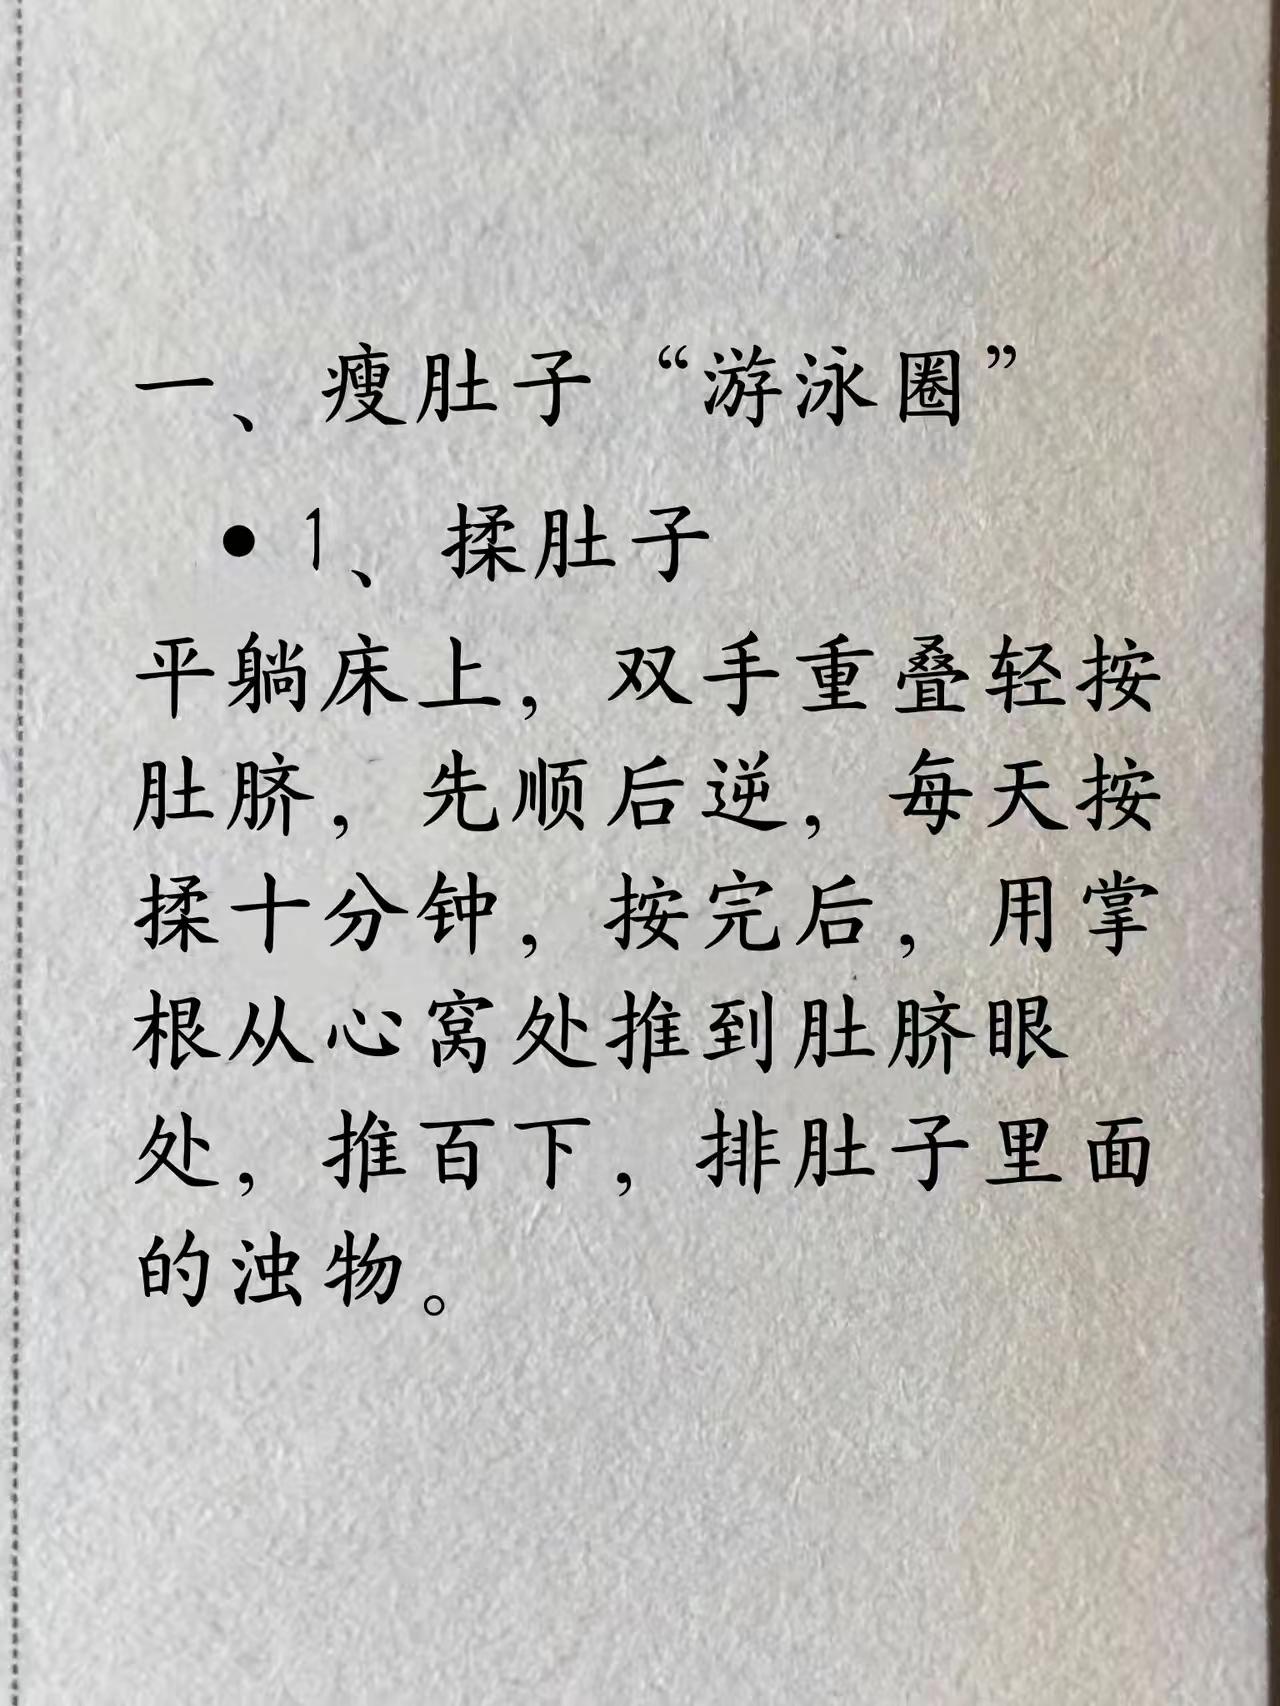 一、瘦肚子“游泳圈”
• 1、揉肚子
平躺床上，双手重叠轻按
肚脐，先顺后逆，每天按
揉十分钟，按完后，用掌
根从心窝处推到肚脐眼
处，推百下，排肚子里面
的浊物。